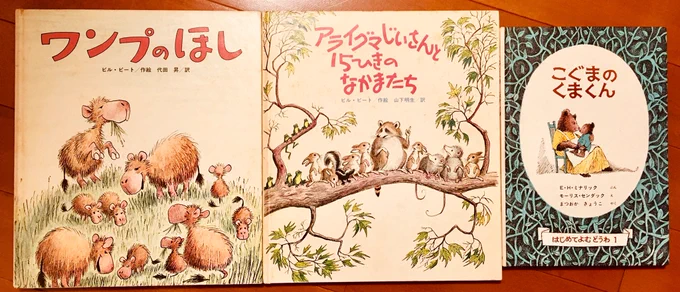 ワンプのほし
ビル・ピート/作絵 代田 昇/訳
アライグマじいさんと
15ひきの
なかまたち
ビル・ピート 作絵 山下明生 訳
こぐまの
くまくん
E・H・ミナリック ぶん
モーリス・センダック え
まつおか きょうこ やく
はじめてよむどうわ 1